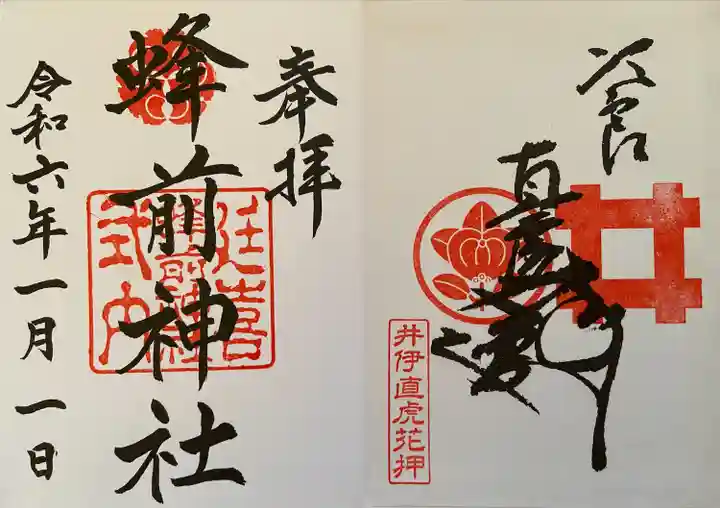 次郎
直虎
井伊直虎花押
奉拝
蜂前神社
延喜
蜂前神社
式内
令和六年一月一日